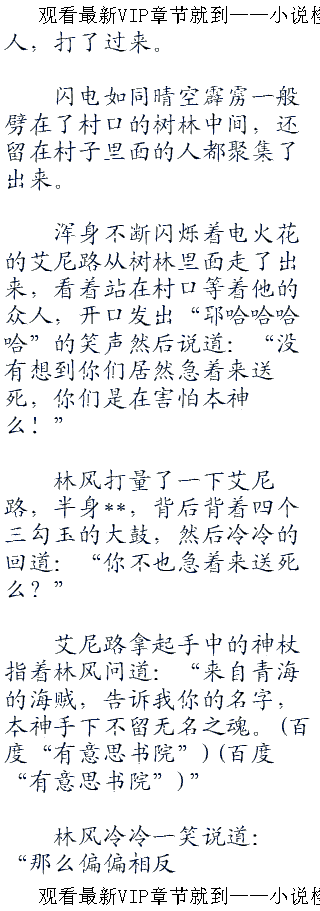 观看最新VIP章节就到——小说检
人，打了过来。
闪电如同晴空霹雳一般
劈在了村口的树林中间，还
留在村子里面的人都聚集了
出来。
浑身不断闪烁着电火花
的艾尼路从树林里面走了出
来，看着站在村口等着他的
众人，开口发出“耶哈哈哈
哈”的笑声然后说道：“没
有想到你们居然急着来送
死，你们是在害怕本神
么！”
林风打量了一下艾尼
路，半身**，背后背着四个
三勾玉的大鼓，然后冷冷的
回道：“你不也急着来送死
么？”
艾尼路拿起手中的神杖
指着林风问道：“来自青海
的海贼，告诉我你的名字，
本神手下不留无名之魂。(百
度“有意思书院”)(百度
“有意思书院”)”
林风冷冷一笑说道：
“那么偏偏相反
观看最新VIP章节就到——小说检